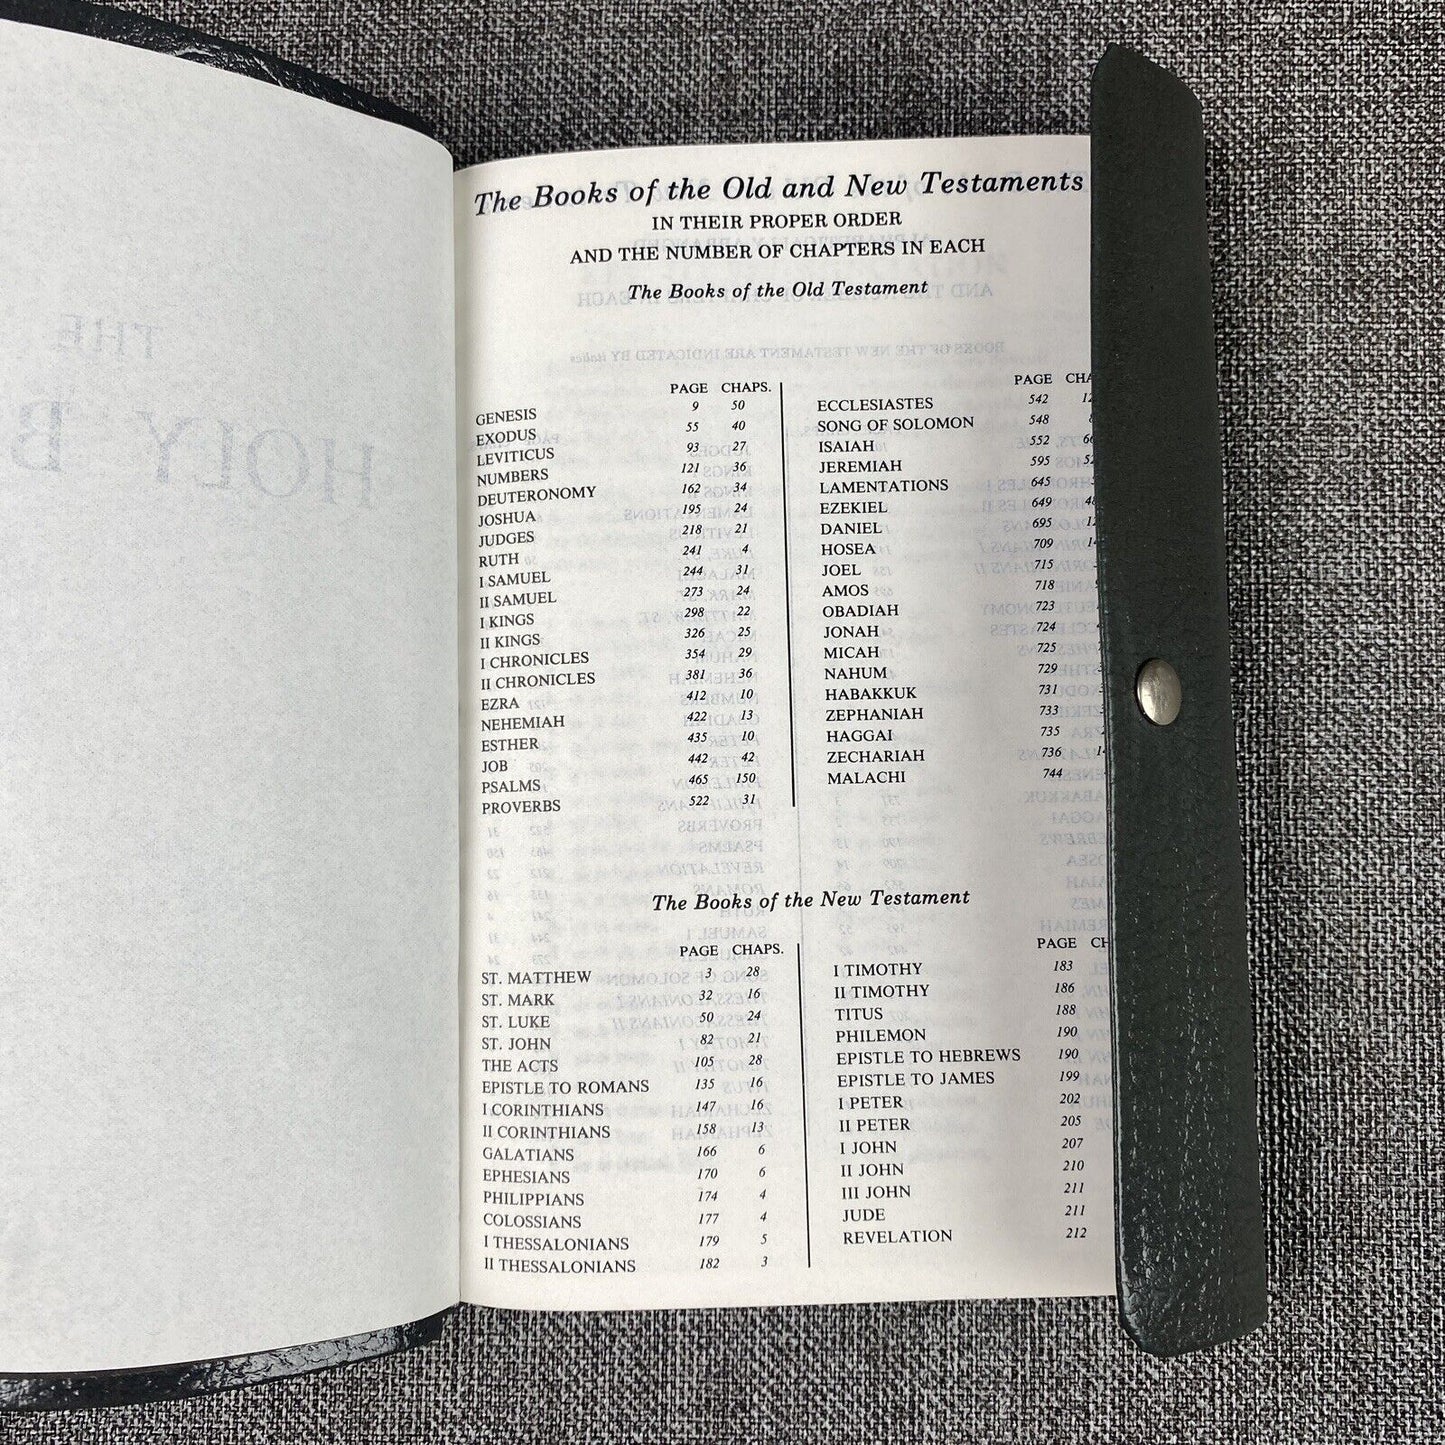 The Books of the Old and New Testaments
IN THEIR PROPER ORDER
AND THE NUMBER OF CHAPTERS IN EACH
The Books of the Old Testament
PAGE CHAPS.
GENESIS 9 50
EXODUS 55 40
LEVITICUS 93 27
NUMBERS 121 36
DEUTERONOMY 162 34
JOSHUA 195 24
JUDGES 218 21
RUTH 241 4
I SAMUEL 244 31
II SAMUEL 273 24
I KINGS 298 22
II KINGS 326 25
I CHRONICLES 354 29
II CHRONICLES 381 36
EZRA 412 10
NEHEMIAH 422 13
ESTHER 435 10
JOB 442 42
PSALMS 465 150
PROVERBS 522 31
PAGE
ECCLESIASTES 542
SONG OF SOLOMON 548
ISAIAH 552
JEREMIAH 595
LAMENTATIONS 645
EZEKIEL 649
DANIEL 695
HOSEA 709
JOEL 715
AMOS 718
OBADIAH 723
JONAH 724
MICAH 725
NAHUM 729
HABAKKUK 731
ZEPHANIAH 733
HAGGAI 735
ZECHARIAH 736
MALACHI 744
The Books of the New Testament
PAGE CHAPS.
ST. MATTHEW 3 28
ST. MARK 32 16
ST. LUKE 50 24
ST. JOHN 82 21
THE ACTS 105 28
EPISTLE TO ROMANS 135 16
I CORINTHIANS 147 16
II CORINTHIANS 158 13
GALATIANS 166 6
EPHESIANS 170 6
PHILIPPIANS 174 4
COLOSSIANS 177 4
I THESSALONIANS 179 5
II THESSALONIANS 182 3
PAGE
I TIMOTHY 183
II TIMOTHY 186
TITUS 188
PHILEMON 190
EPISTLE TO HEBREWS 190
EPISTLE TO JAMES 199
I PETER 202
II PETER 205
I JOHN 207
II JOHN 210
III JOHN 211
JUDE 211
REVELATION 212